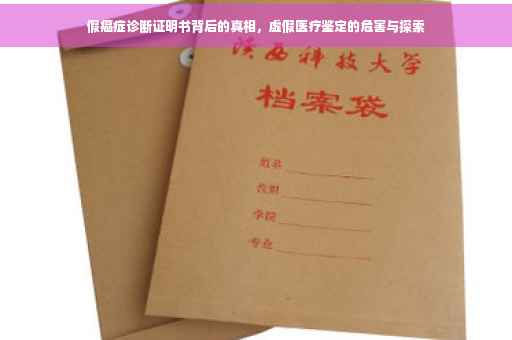 假癌症诊断证明书背后的真相，虚假医疗鉴定的危害与探索
陕西科技大学
档案袋
姓名
学院
专业